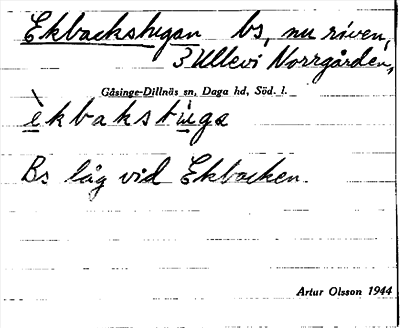 Ekbackstugan bs, nu riven,
3 Ullevi Norrgården,
Gåsinge-Dillnäs sn, Daga hd, Söd. l.
èkbakstùga
Bs låg vid Ekbacken.
Artur Olsson 1944